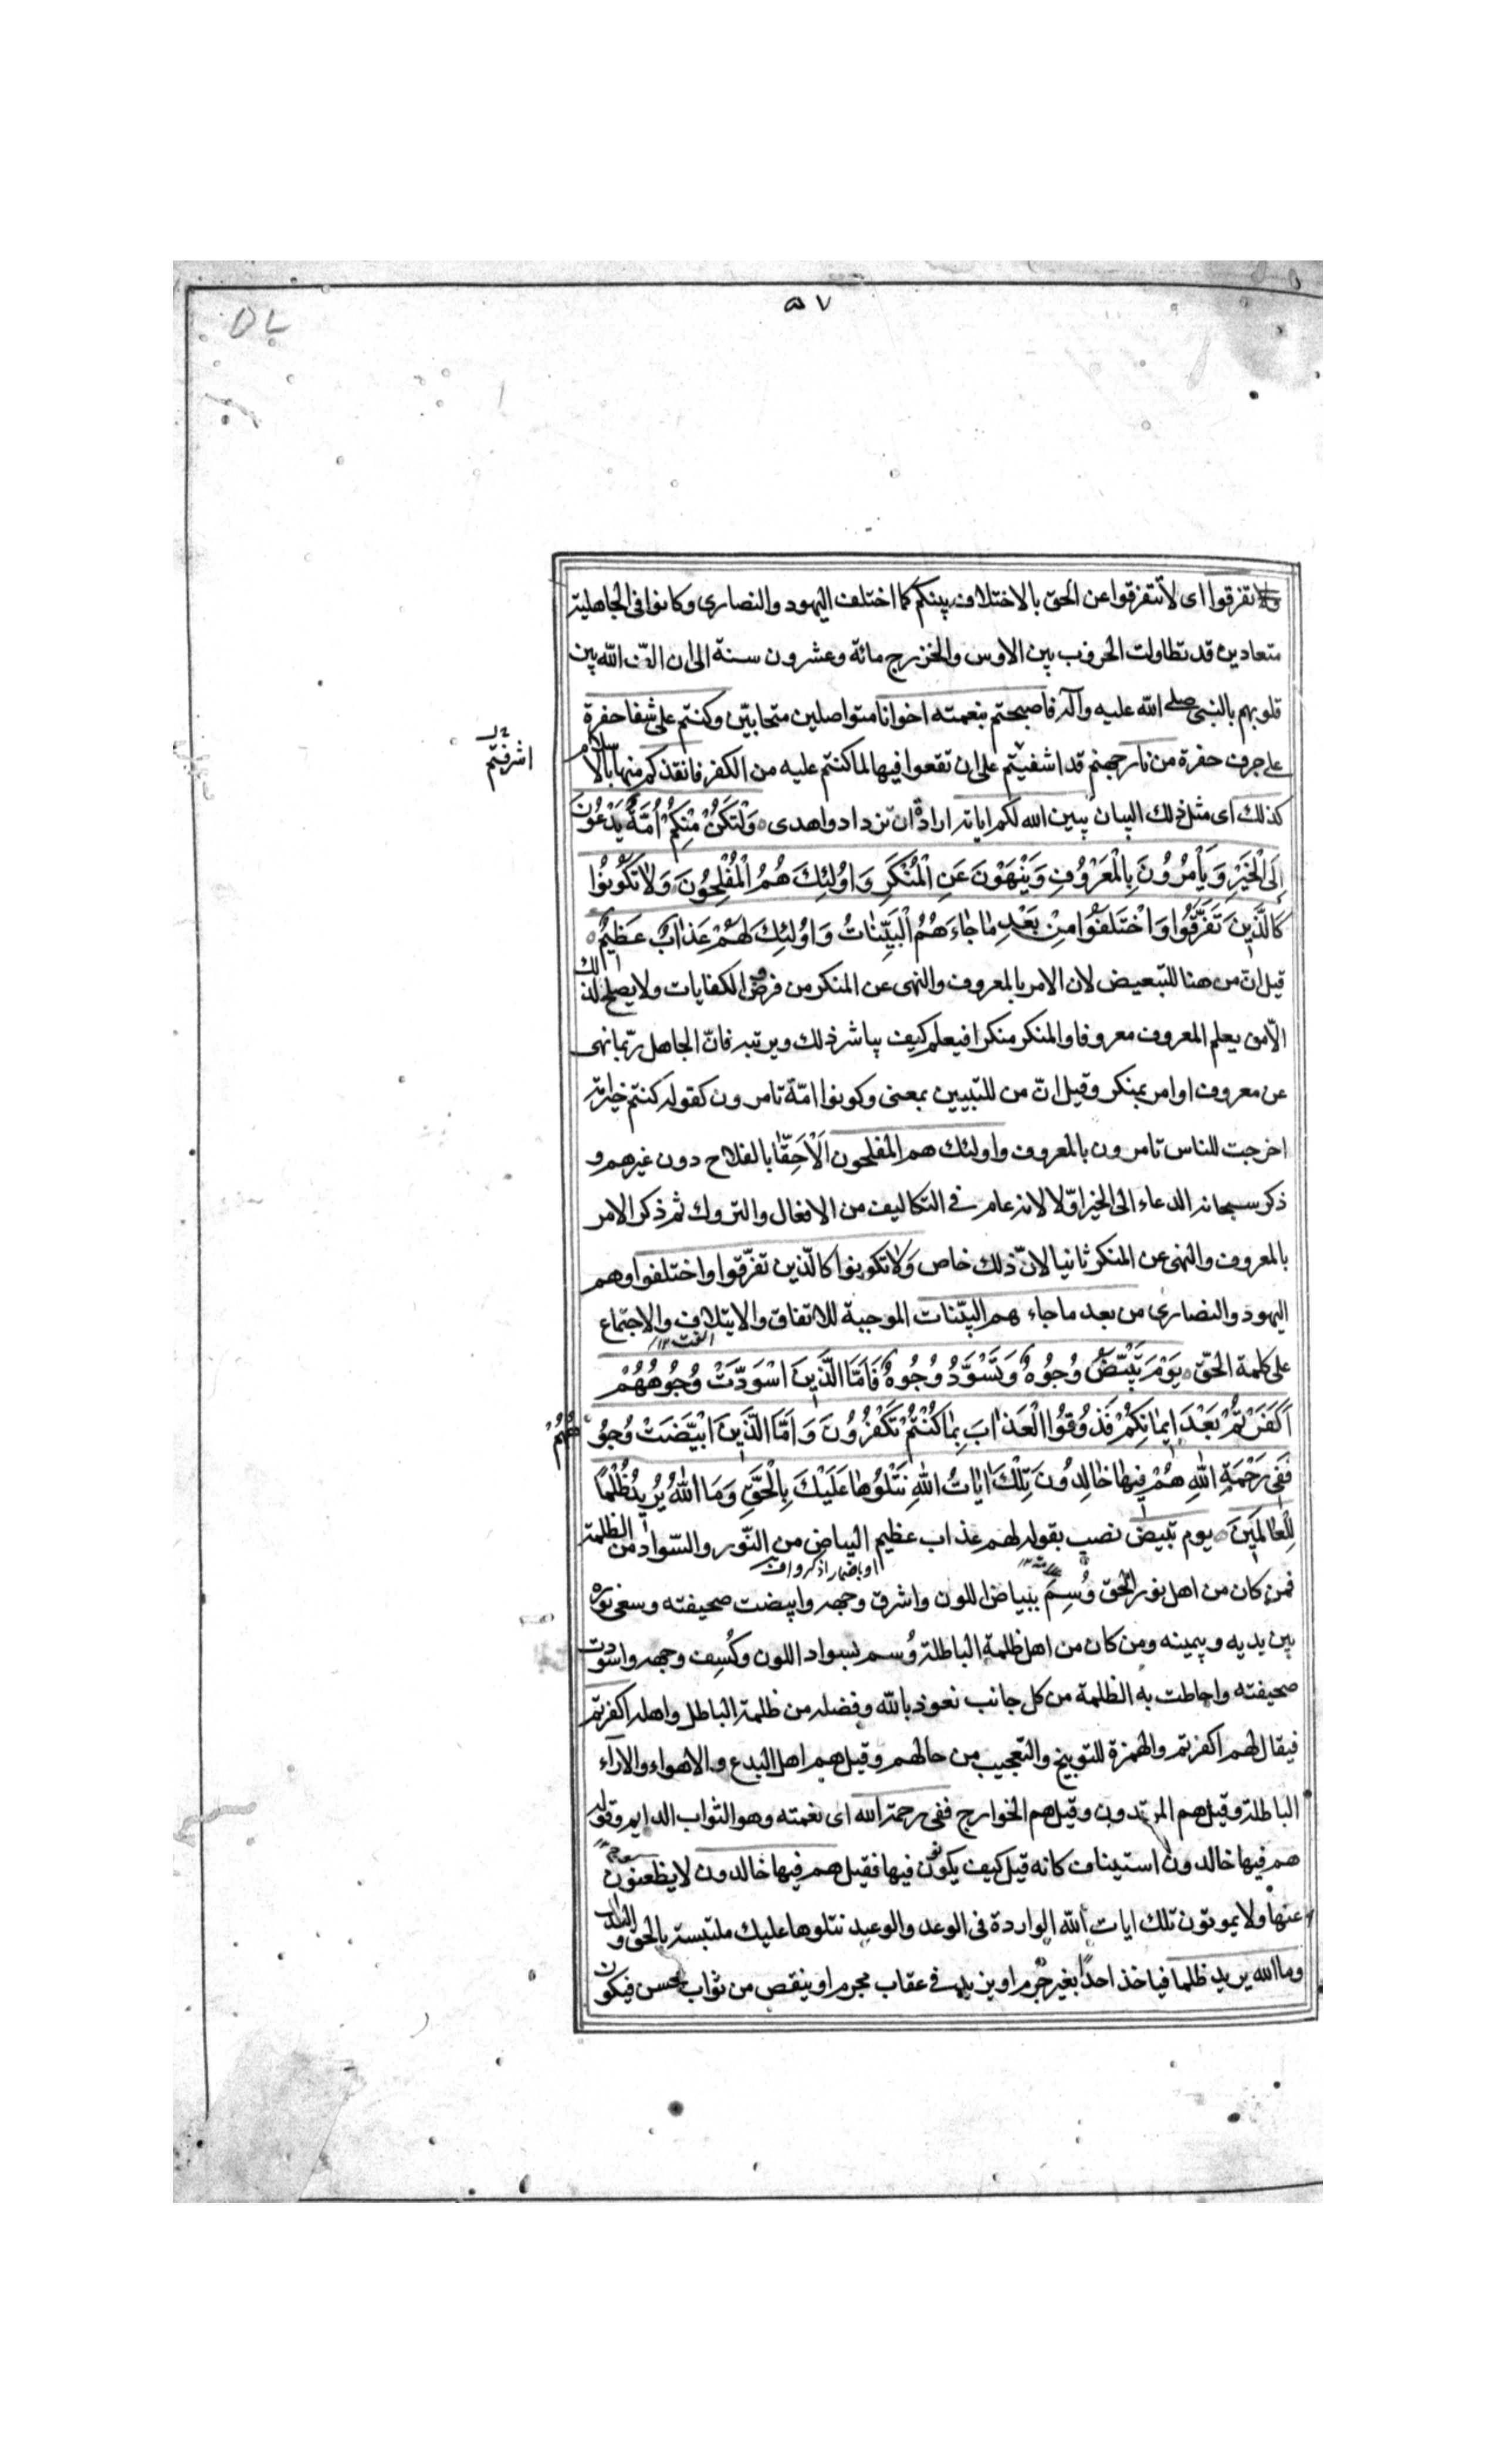 ۵۷
ولا تفرقوا اى لا تتفرقوا عن الحق بالاختلاف بينكم كما اختلف اليهود والنصارى وكانوا فى الجاهلية
متعادين قد تطاولت الحروب بين الاوس والخزرج مائة وعشرون سنة الى ان الف الله بين
قلوبهم بالنبى صلى الله عليه وآله فاصبحتم بنعمته اخوانا متواصلين متحابّين وكنتم على شفا حفرة
على حرف حفرة من نار جهنم قد اشفيتم على ان تقعوا فيها لما كنتم عليه من الكفر فانقذكم منها بالاسلام
اشرفتم
كذلك اى مثل ذلك البيان يبين الله لكم اياته ارادة ان تزدادوا هدى وَلْتَكُنْ مِنْكُمْ اُمَّةٌ يَدْعُونَ
اِلَى الْخَيْرِ وَيَأْمُرُونَ بِالْمَعْرُوفِ وَيَنْهَوْنَ عَنِ الْمُنْكَرِ وَاُولئِكَ هُمُ الْمُفْلِحُونَ وَلَا تَكُونُوا
كَالَّذِينَ تَفَرَّقُوا وَاخْتَلَفُوا مِنْ بَعْدِ مَا جَاءَهُمُ الْبَيِّنَاتُ وَاُولئِكَ لَهُمْ عَذَابٌ عَظِيمٌ
قيل انّ من هنا للتبعيض لان الامر بالمعروف والنهى عن المنكر من فروض الكفايات ولا يصلح لذلك
الّا من يعلم المعروف معروفا والمنكر منكرا فيعلم كيف يباشر ذلك ويرتبه فانّ الجاهل ربّما نهى
عن معروف او امر بمنكر وقيل انّ من للتبيين بمعنى وكونوا امّة تامرون كقوله كنتم خير امة
اخرجت للناس تامرون بالمعروف واولئك هم المفلحون الْاَحِقّا بالفلاح دون غيرهم و
ذكر سبحانه الدعاء الى الخير اوّلا لانه عام فى التكاليف من الافعال والتروك ثم ذكر الامر
بالمعروف والنهى عن المنكر ثانيا لانّ ذلك خاص وَلا تكونوا كالّذين تفرّقوا واختلفوا وهم
اليهود والنصارى من بعد ما جاءهم البيّنات الموجبة للاتفاق والايتلاف والاجتماع
على كلمة الحقّ يَوْمَ تَبْيَضُّ وُجُوهٌ وَتَسْوَدُّ وُجُوهٌ فَاَمَّا الَّذِينَ اسْوَدَّتْ وُجُوهُهُمْ
اَكَفَرْتُمْ بَعْدَ اِيمَانِكُمْ فَذُوقُوا الْعَذَابَ بِمَا كُنْتُمْ تَكْفُرُونَ وَاَمَّا الَّذِينَ ابْيَضَّتْ وُجُوهُهُمْ
فَفِى رَحْمَةِ اللهِ هُمْ فِيهَا خَالِدُونَ تِلْكَ ايَاتُ اللهِ نَتْلُوهَا عَلَيْكَ بِالْحَقِّ وَمَا اللهُ يُرِيدُ ظُلْمًا
لِلْعَالَمِينَ يوم تبيض نصب بقوله لهم عذاب عظيم البياض من النّور والسّواد من الظلمة
او باضمار اذكروا
فمن كان من اهل نور الحق وُسِمَ ببياض اللون واشرق وجهه وابيضت صحيفته وسعى نوره
بين يديه وبيمينه ومن كان من اهل ظلمة الباطلة وُسم بسواد اللون وكُسِف وجهه واسودت
صحيفته واحاطت به الظلمة من كل جانب نعوذ بالله وفضله من ظلمة الباطل واهله اكفرتم
فيقال لهم اكفرتم والهمزة للتوبيخ والتعجيب من حالهم وقيل هم اهل البدع والاهواء والاراء
الباطلة وقيل هم المرتدون وقيل هم الخوارج ففى رحمة الله اى نعمته وهو الثواب الدايم وقوله
هم فيها خالدون استيناف كانه قيل كيف يكونون فيها فقيل هم فيها خالدون لا يظعنون
عنها ولا يموتون تلك ايات الله الواردة فى الوعد والوعيد نتلوها عليك ملتبسة بالحق و
وما الله يريد ظلما فياخذ احدًا بغير جُرم او يزيد فى عقاب مجرم او ينقص من ثواب محسن فيكون